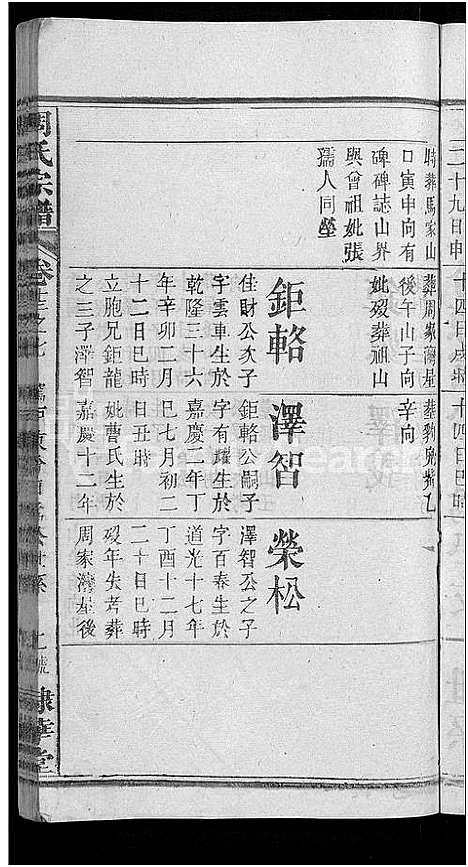 二十九日申
十四日戌時
十四日巳時
時葬馬家山
口寅申向有
碑碑誌山界
與曾祖妣張
孺人同塋
葬周家灣星
後午山子向
妣歿葬祖山
辛向
鉅輅
佳財公次子
字雲車生於
乾隆三十六
年辛卯二月
十二日巳時
立胞兄鉅龍
之三子澤智
澤智
鉅輅公嗣子
字有耀生於
嘉慶二年丁
巳七月初二
日丑時
妣曹氏生於
嘉慶十二年
榮松
澤智公之子
字百春生於
道光十七年
丁酉十二月
二十日巳時
歿年失考葬
周家灣星後
周氏宗譜
卷